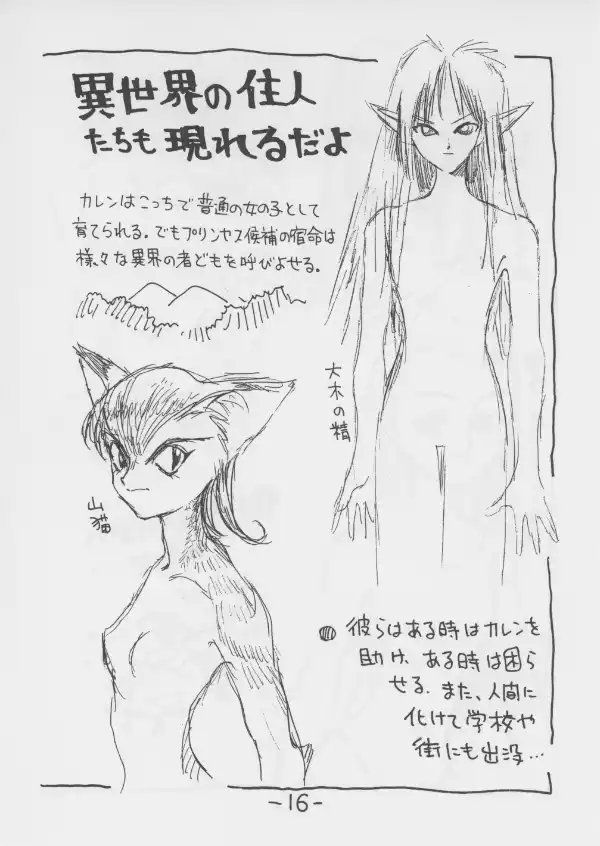 異世界の住人
たちも現れるだよ
カレンはこっちで普通の女の子として
育てられる。でもプリンセス候補の宿命は
様々な異界の者どもを呼びよせる。
大木の精
山猫
彼らはある時はカレンを
助け、ある時は困ら
せる。また、人間に
化けて学校や
街にも出没…
-16-